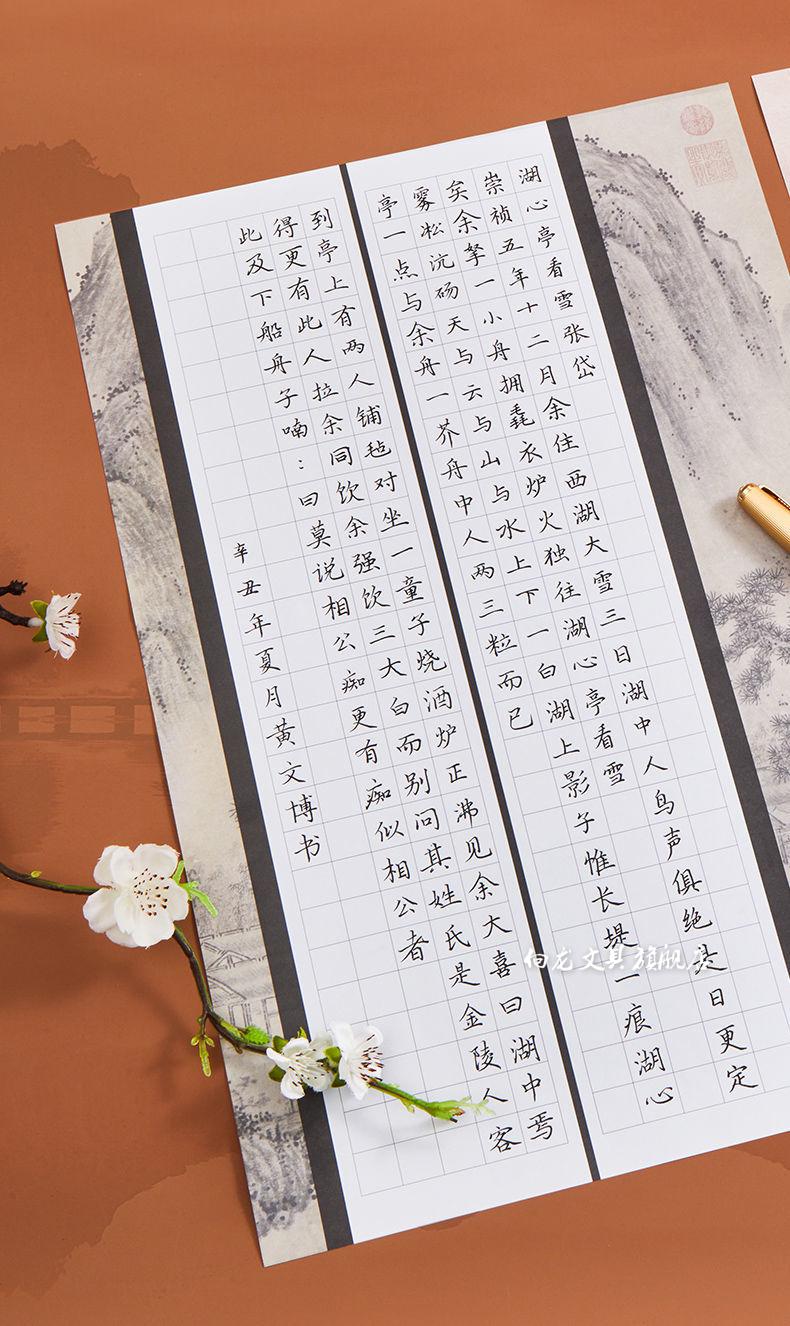 湖心亭看雪张岱
崇祯五年十二月余住西湖大雪三日湖中人鸟声俱绝是日更定
矣余拏一小舟拥毳衣炉火独往湖心亭看雪
雾凇沆砀天与云与山与水上下一白湖上影子惟长堤一痕湖心
亭一点与余舟一芥舟中人两三粒而已
到亭上有两人铺毡对坐一童子烧酒炉正沸见余大喜曰湖中焉
得更有此人拉余同饮余强饮三大白而别问其姓氏是金陵人客
此及下船舟子喃：曰莫说相公痴更有痴似相公者
辛丑年夏月黄文博书
向龙文具旗舰店